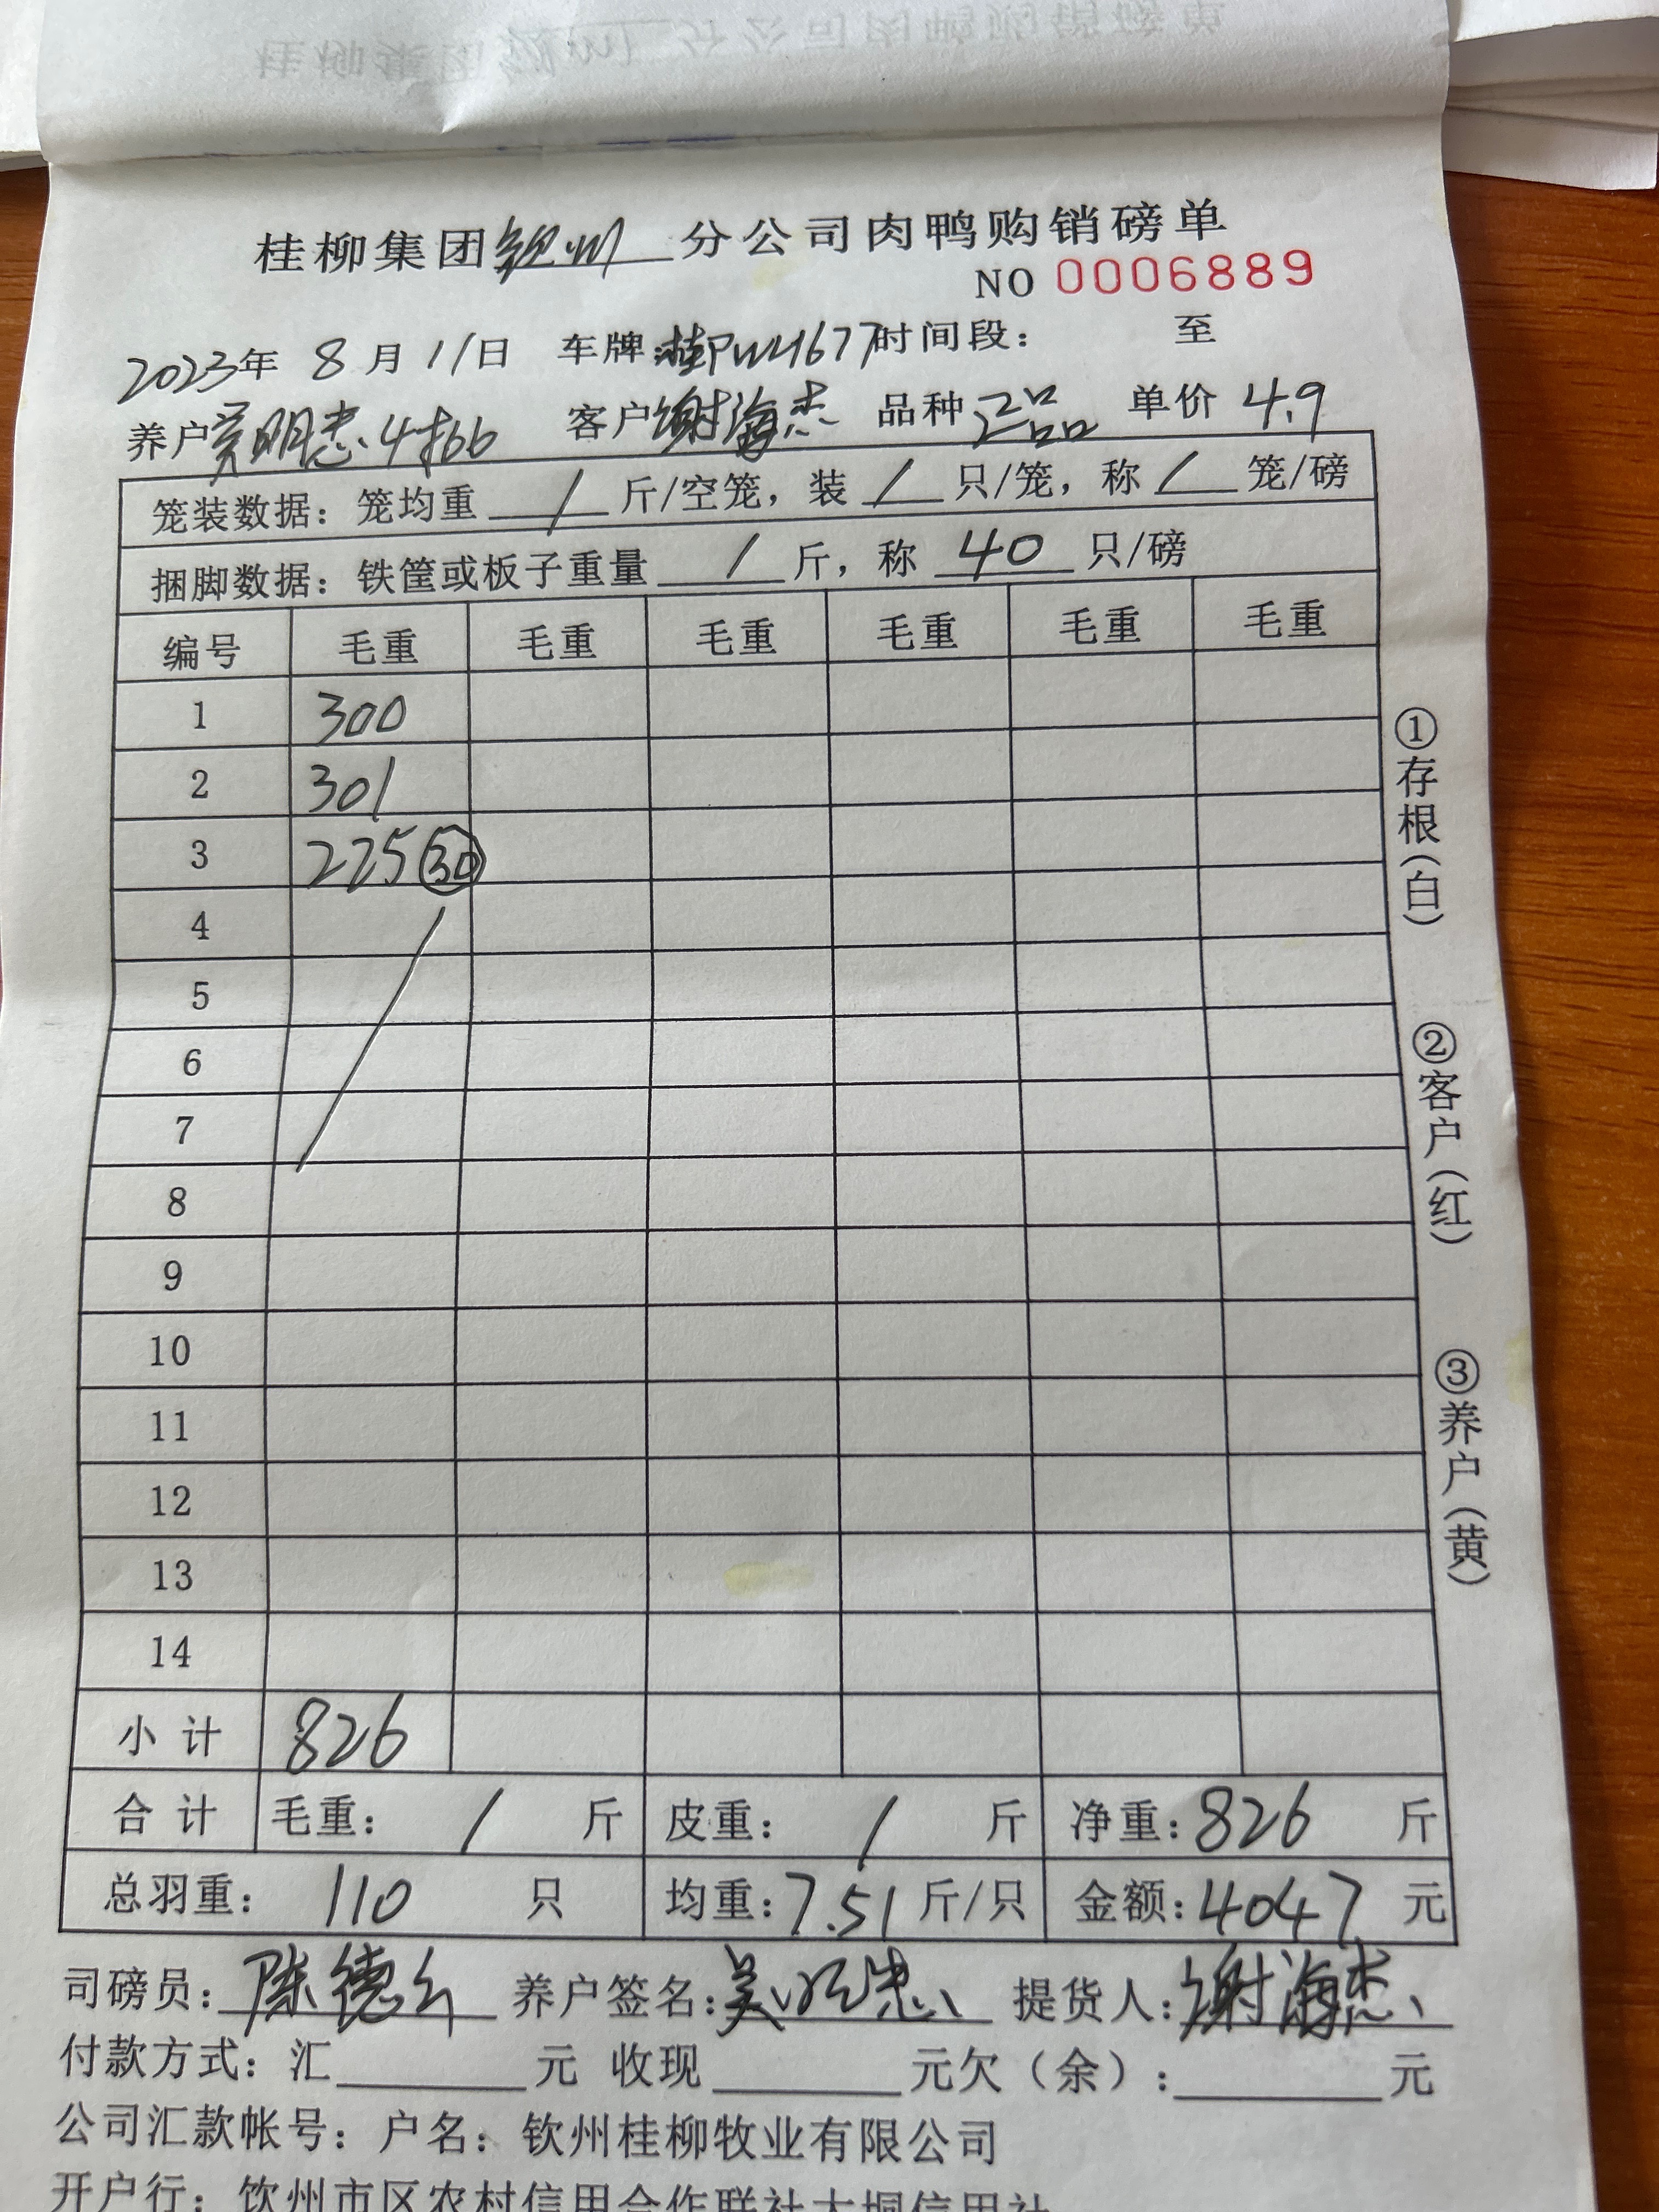 桂柳集团钦州分公司肉鸭购销磅单
NO 0006889
2023年 8月11日 车牌:桂PW1677时间段: 至
养户 明忠.4批66 客户谢海杰 品种二品 单价 4.9
笼装数据: 笼均重 / 斤/空笼, 装 / 只/笼, 称 / 笼/磅
捆脚数据: 铁筐或板子重量 / 斤, 称 40 只/磅
编号 毛重 毛重 毛重 毛重 毛重 毛重
1 300
2 301
3 225 ㉚
4
5
6
7
8
9
10
11
12
13
14
小计 826
合计 毛重: / 斤 皮重: / 斤 净重: 826 斤
总羽重: 110 只 均重: 7.51 斤/只 金额: 4047 元
司磅员: 陈德 养户签名: 明忠 提货人: 谢海杰
付款方式: 汇 元 收现 元欠(余): 元
公司汇款帐号: 户名: 钦州桂柳牧业有限公司
开户行: 钦州市区农村信用合作联社大垌信用社
①存根(白)
②客户(红)
③养户(黄)